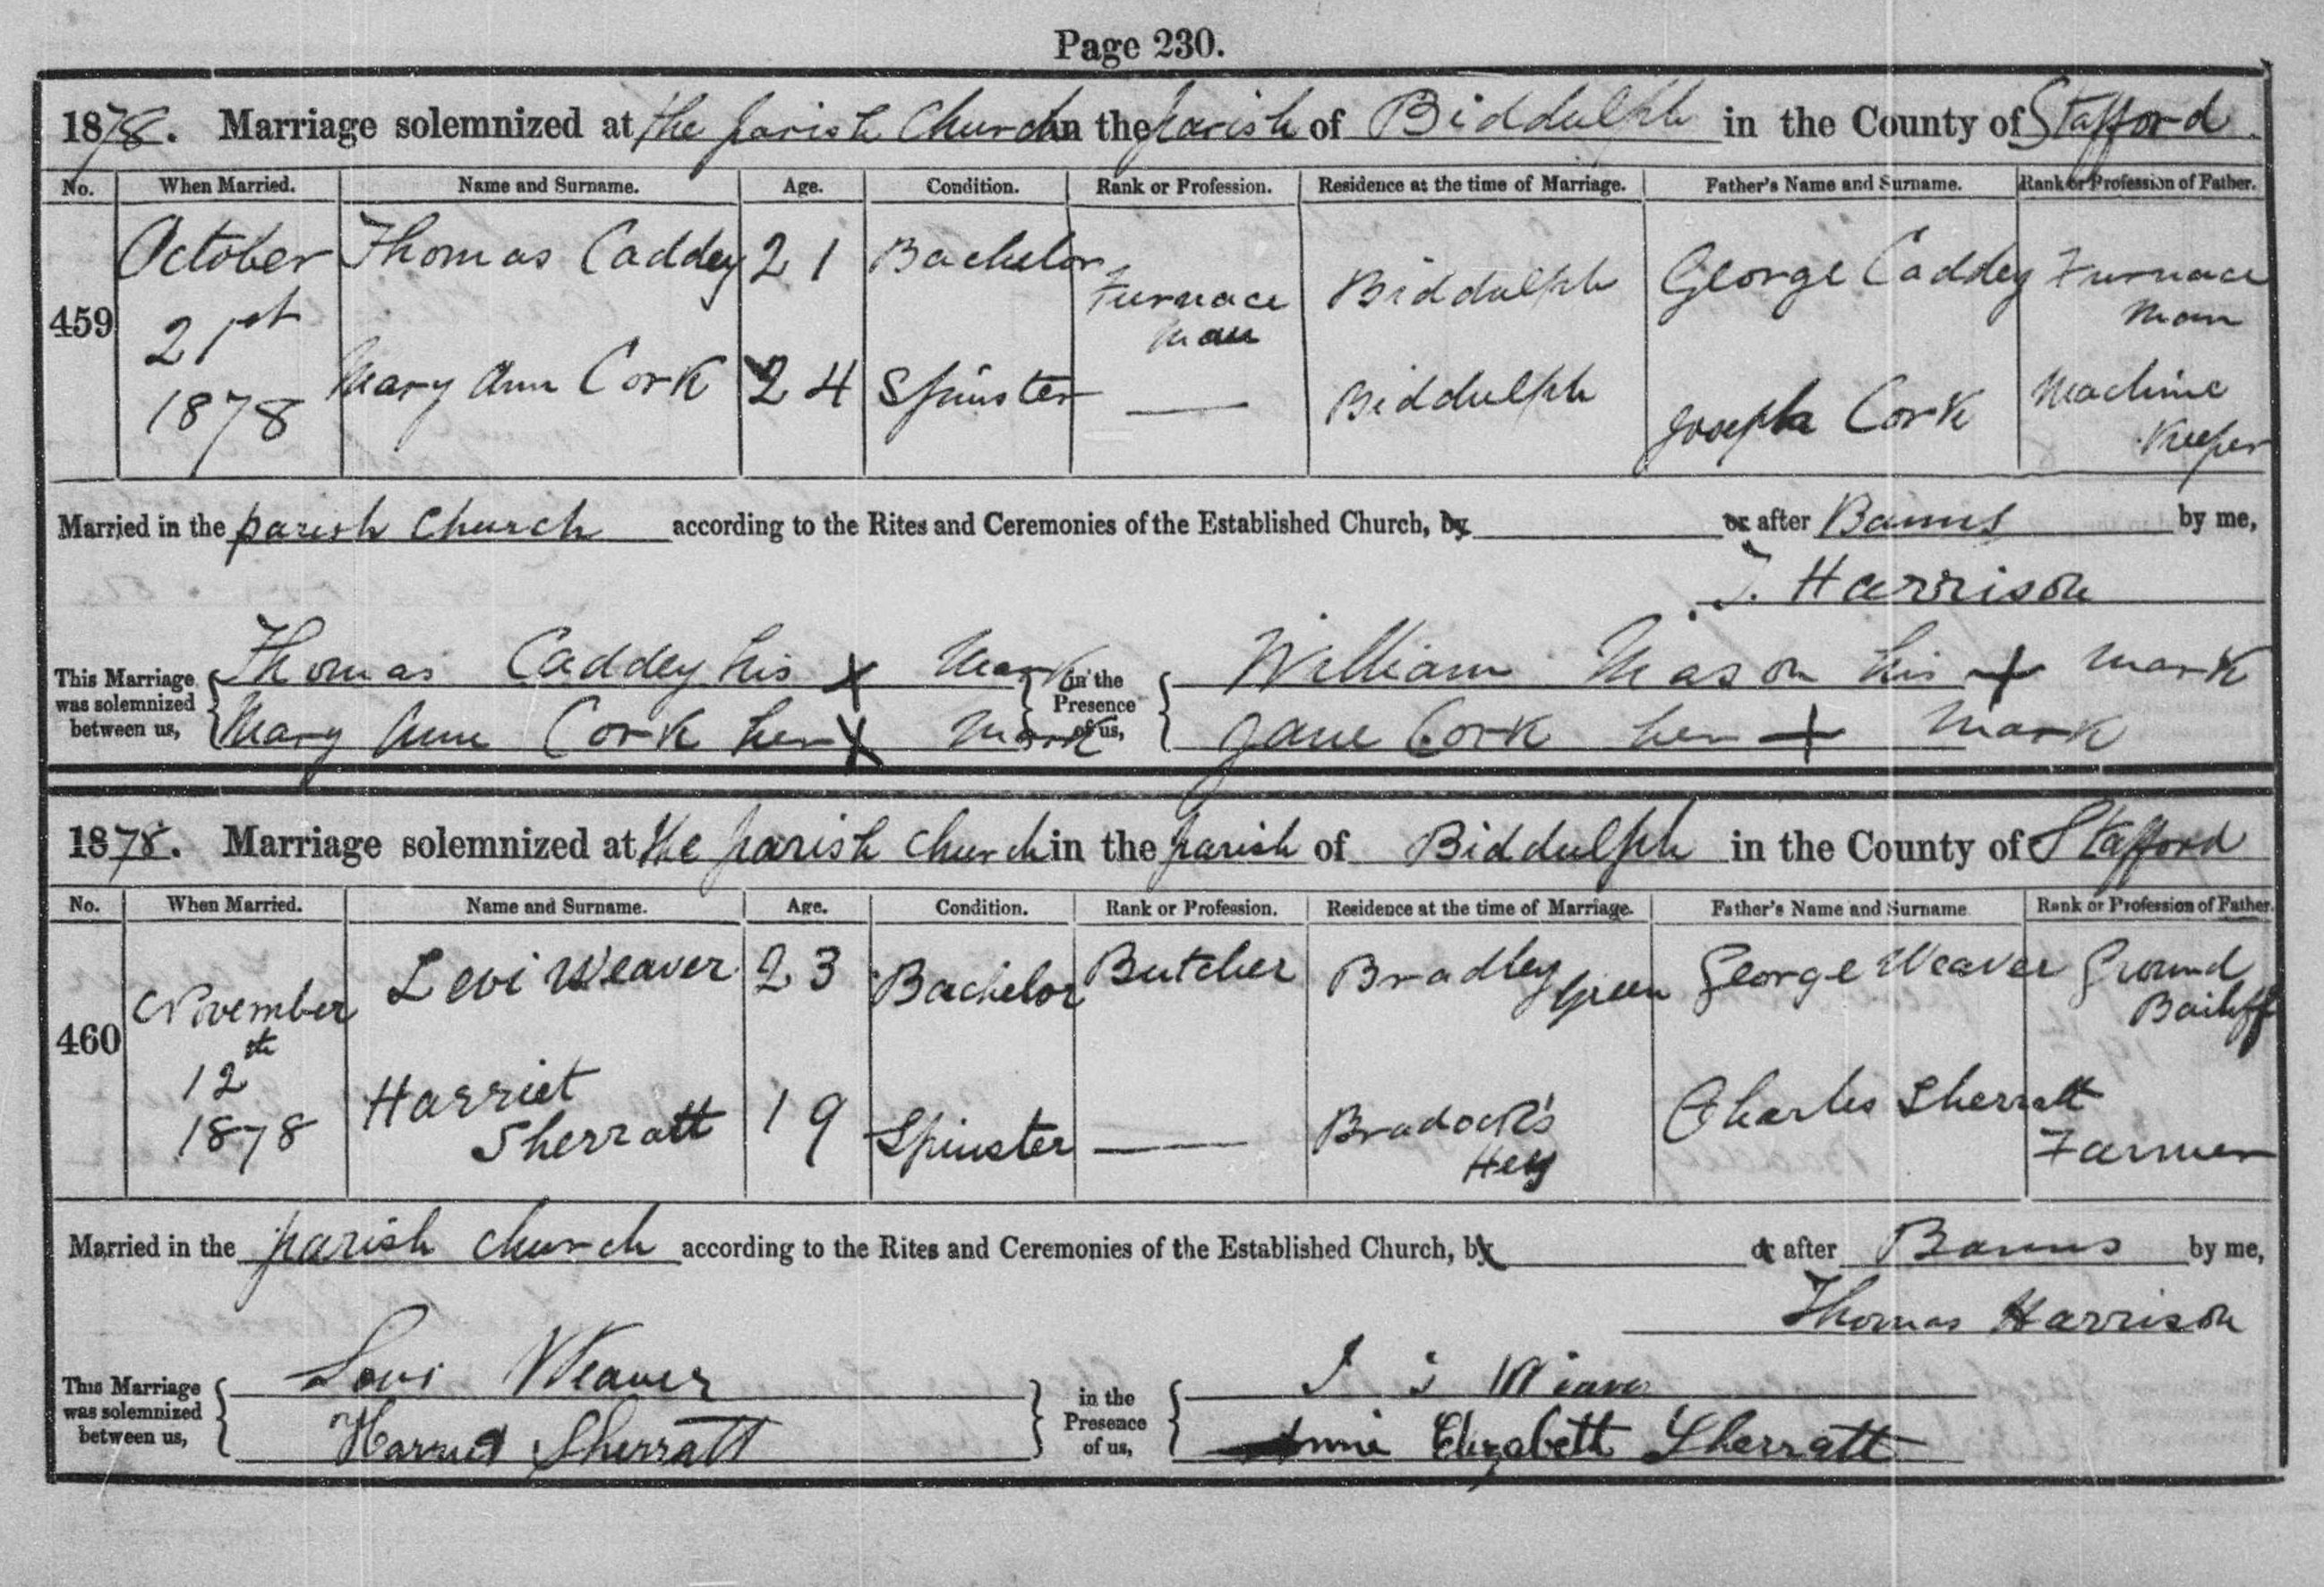 Page 230.
1878. Marriage solemnized at the parish Church in the parish of Biddulph in the County of Stafford
No. When Married. Name and Surname. Age. Condition. Rank or Profession. Residence at the time of Marriage. Father's Name and Surname. Rank or Profession of Father.
459 October 21st 1878 Thomas Caddey 21 Bachelor Furnace Man Biddulph George Caddey Furnace Man
Mary Ann Cork 24 Spinster — Biddulph Joseph Cork Machine Keeper
Married in the parish Church according to the Rites and Ceremonies of the Established Church, by or after Banns by me,
T. Harrison
This Marriage was solemnized between us, Thomas Caddey his X Mark in the Presence of us, William Mason his + mark
Mary Ann Cork her X Mark Jane Cork her + Mark
1878. Marriage solemnized at the parish church in the parish of Biddulph in the County of Stafford
No. When Married. Name and Surname. Age. Condition. Rank or Profession. Residence at the time of Marriage. Father's Name and Surname Rank or Profession of Father.
460 November 12th 1878 Levi Weaver 23 Bachelor Butcher Bradley Green George Weaver Ground Bailiff
Harriet Sherratt 19 Spinster — Bradock's Hey Charles Sherratt Farmer
Married in the parish church according to the Rites and Ceremonies of the Established Church, by or after Banns by me,
Thomas Harrison
This Marriage was solemnized between us, Levi Weaver in the Presence of us,
Harriet Sherratt Annie Elizabeth Sherratt